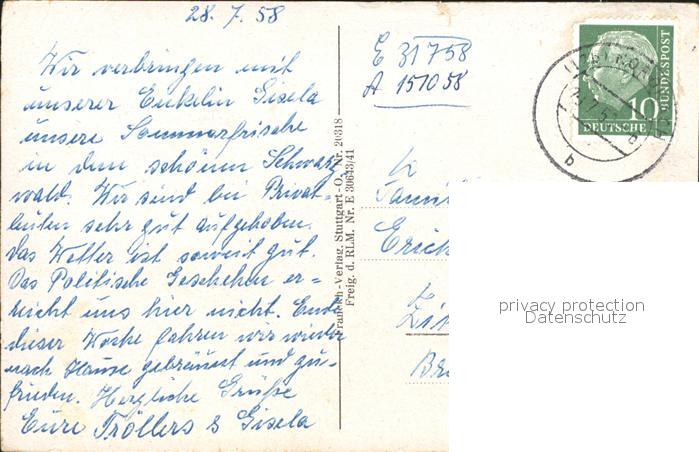 28. 7. 58
Wir verbringen mit
unserer Enkelin Gisela
unsere Sommerfrische
in dem schönen Schwarz
wald. Wir sind bei Privat-
leuten sehr gut aufgehoben.
Das Wetter ist soweit gut.
Das Politische Geschehen er=
reicht uns hier nicht. Ende
dieser Woche fahren wir wieder
nach Hause gebräunt und zu-
frieden. Herzliche Grüße
Eure Tröllers & Gisela
Franckh-Verlag, Stuttgart-O., Nr. 20318
Freig. d. RLM. Nr. E 30643/41
E 31758
A 151058
10
DEUTSCHE
BUNDESPOST
b
Fami
Erich
Bre
privacy protection
Datenschutz